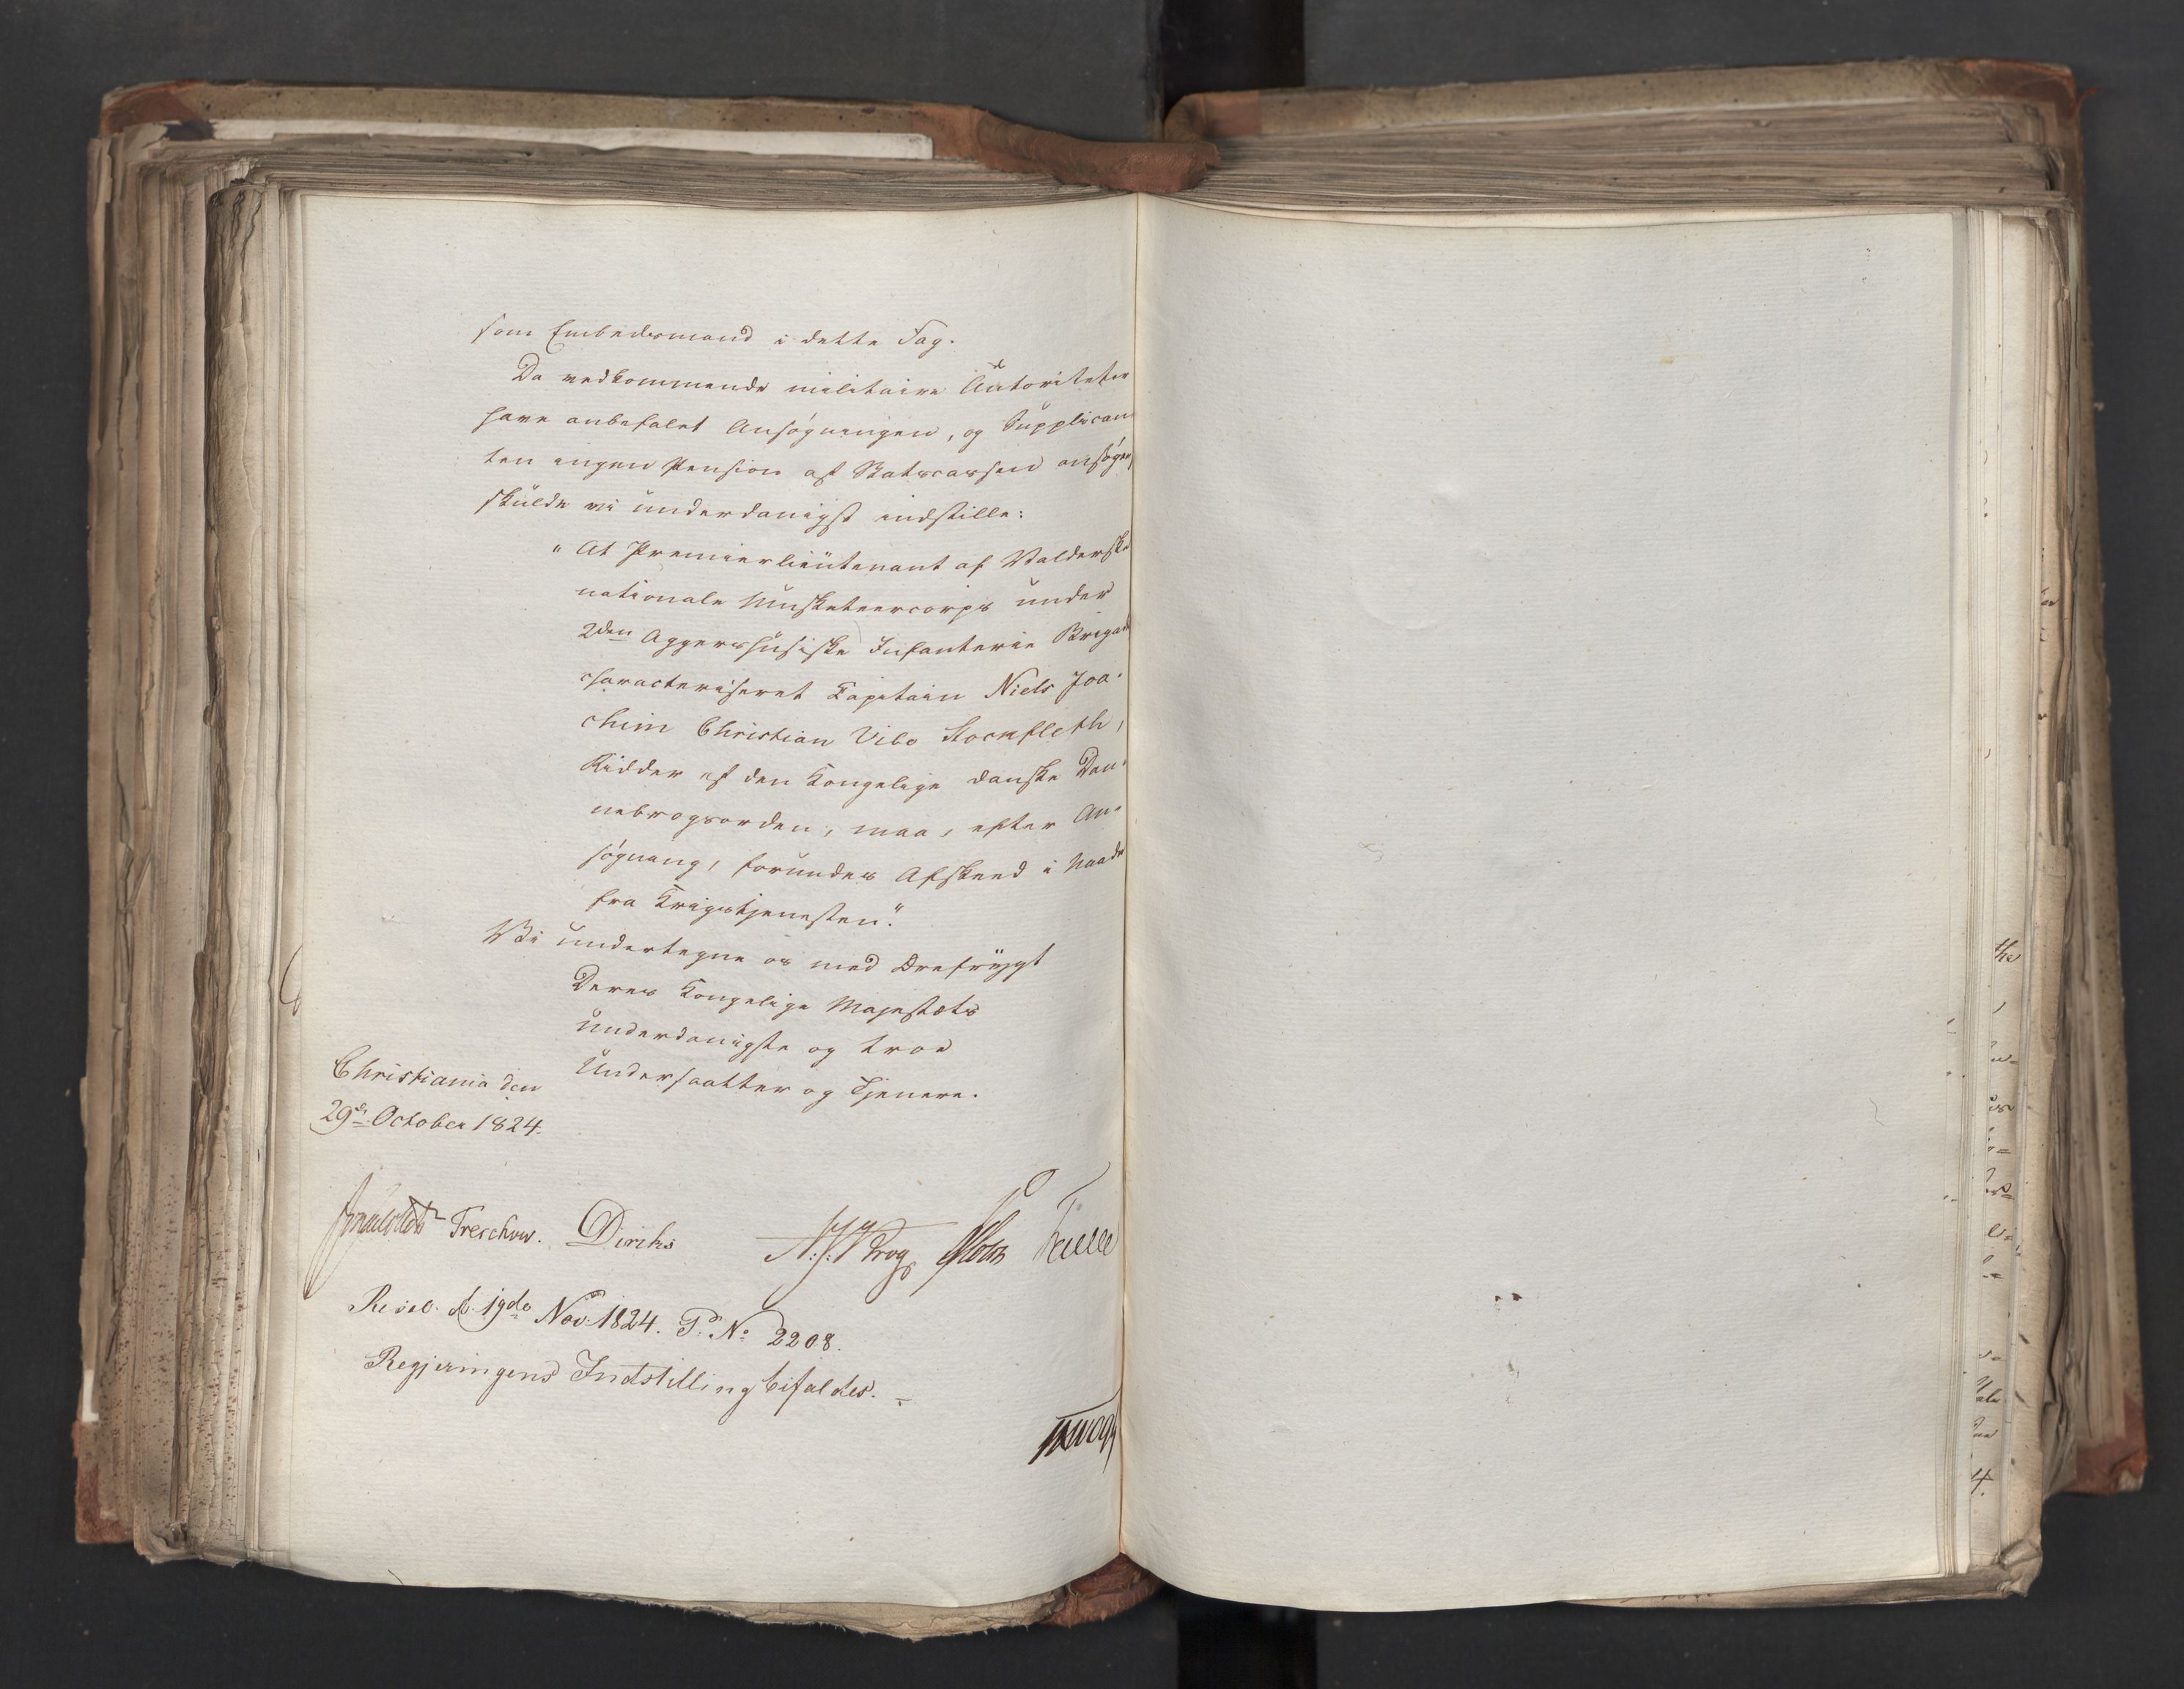 som Embedsmand i dette Fag.
Da vedkommende militaire Autoriteter
have anbefalet Ansøgningen, og Supplican
ten ingen Pension af Statscassen ansøger
skulde vi underdanigst indstille:
"At Premierlieutenant af Valderske
nationale Musketeercorps under
2den Aggershusiske Infanterie Brigade
characteriseret Capitain Niels Joa-
chim Christian Vibe Stockfleth,
Ridder af den Kongelige danske Dan-
nebrogsorden, maa, efter An-
søgning, forundes Afskeed i Naade
fra Krigstjenesten."
Vi undertegne os med Ærefrygt
Deres Kongelige Majestæts
underdanigste og troe
Undersaatter og Tjenere.
Christiania den
29de October 1824.
Treschow. Diriks Krog Holst
Resol. d. 19de Nov. 1824. P. No 2208.
Regjeringens Indstilling bifaldes.